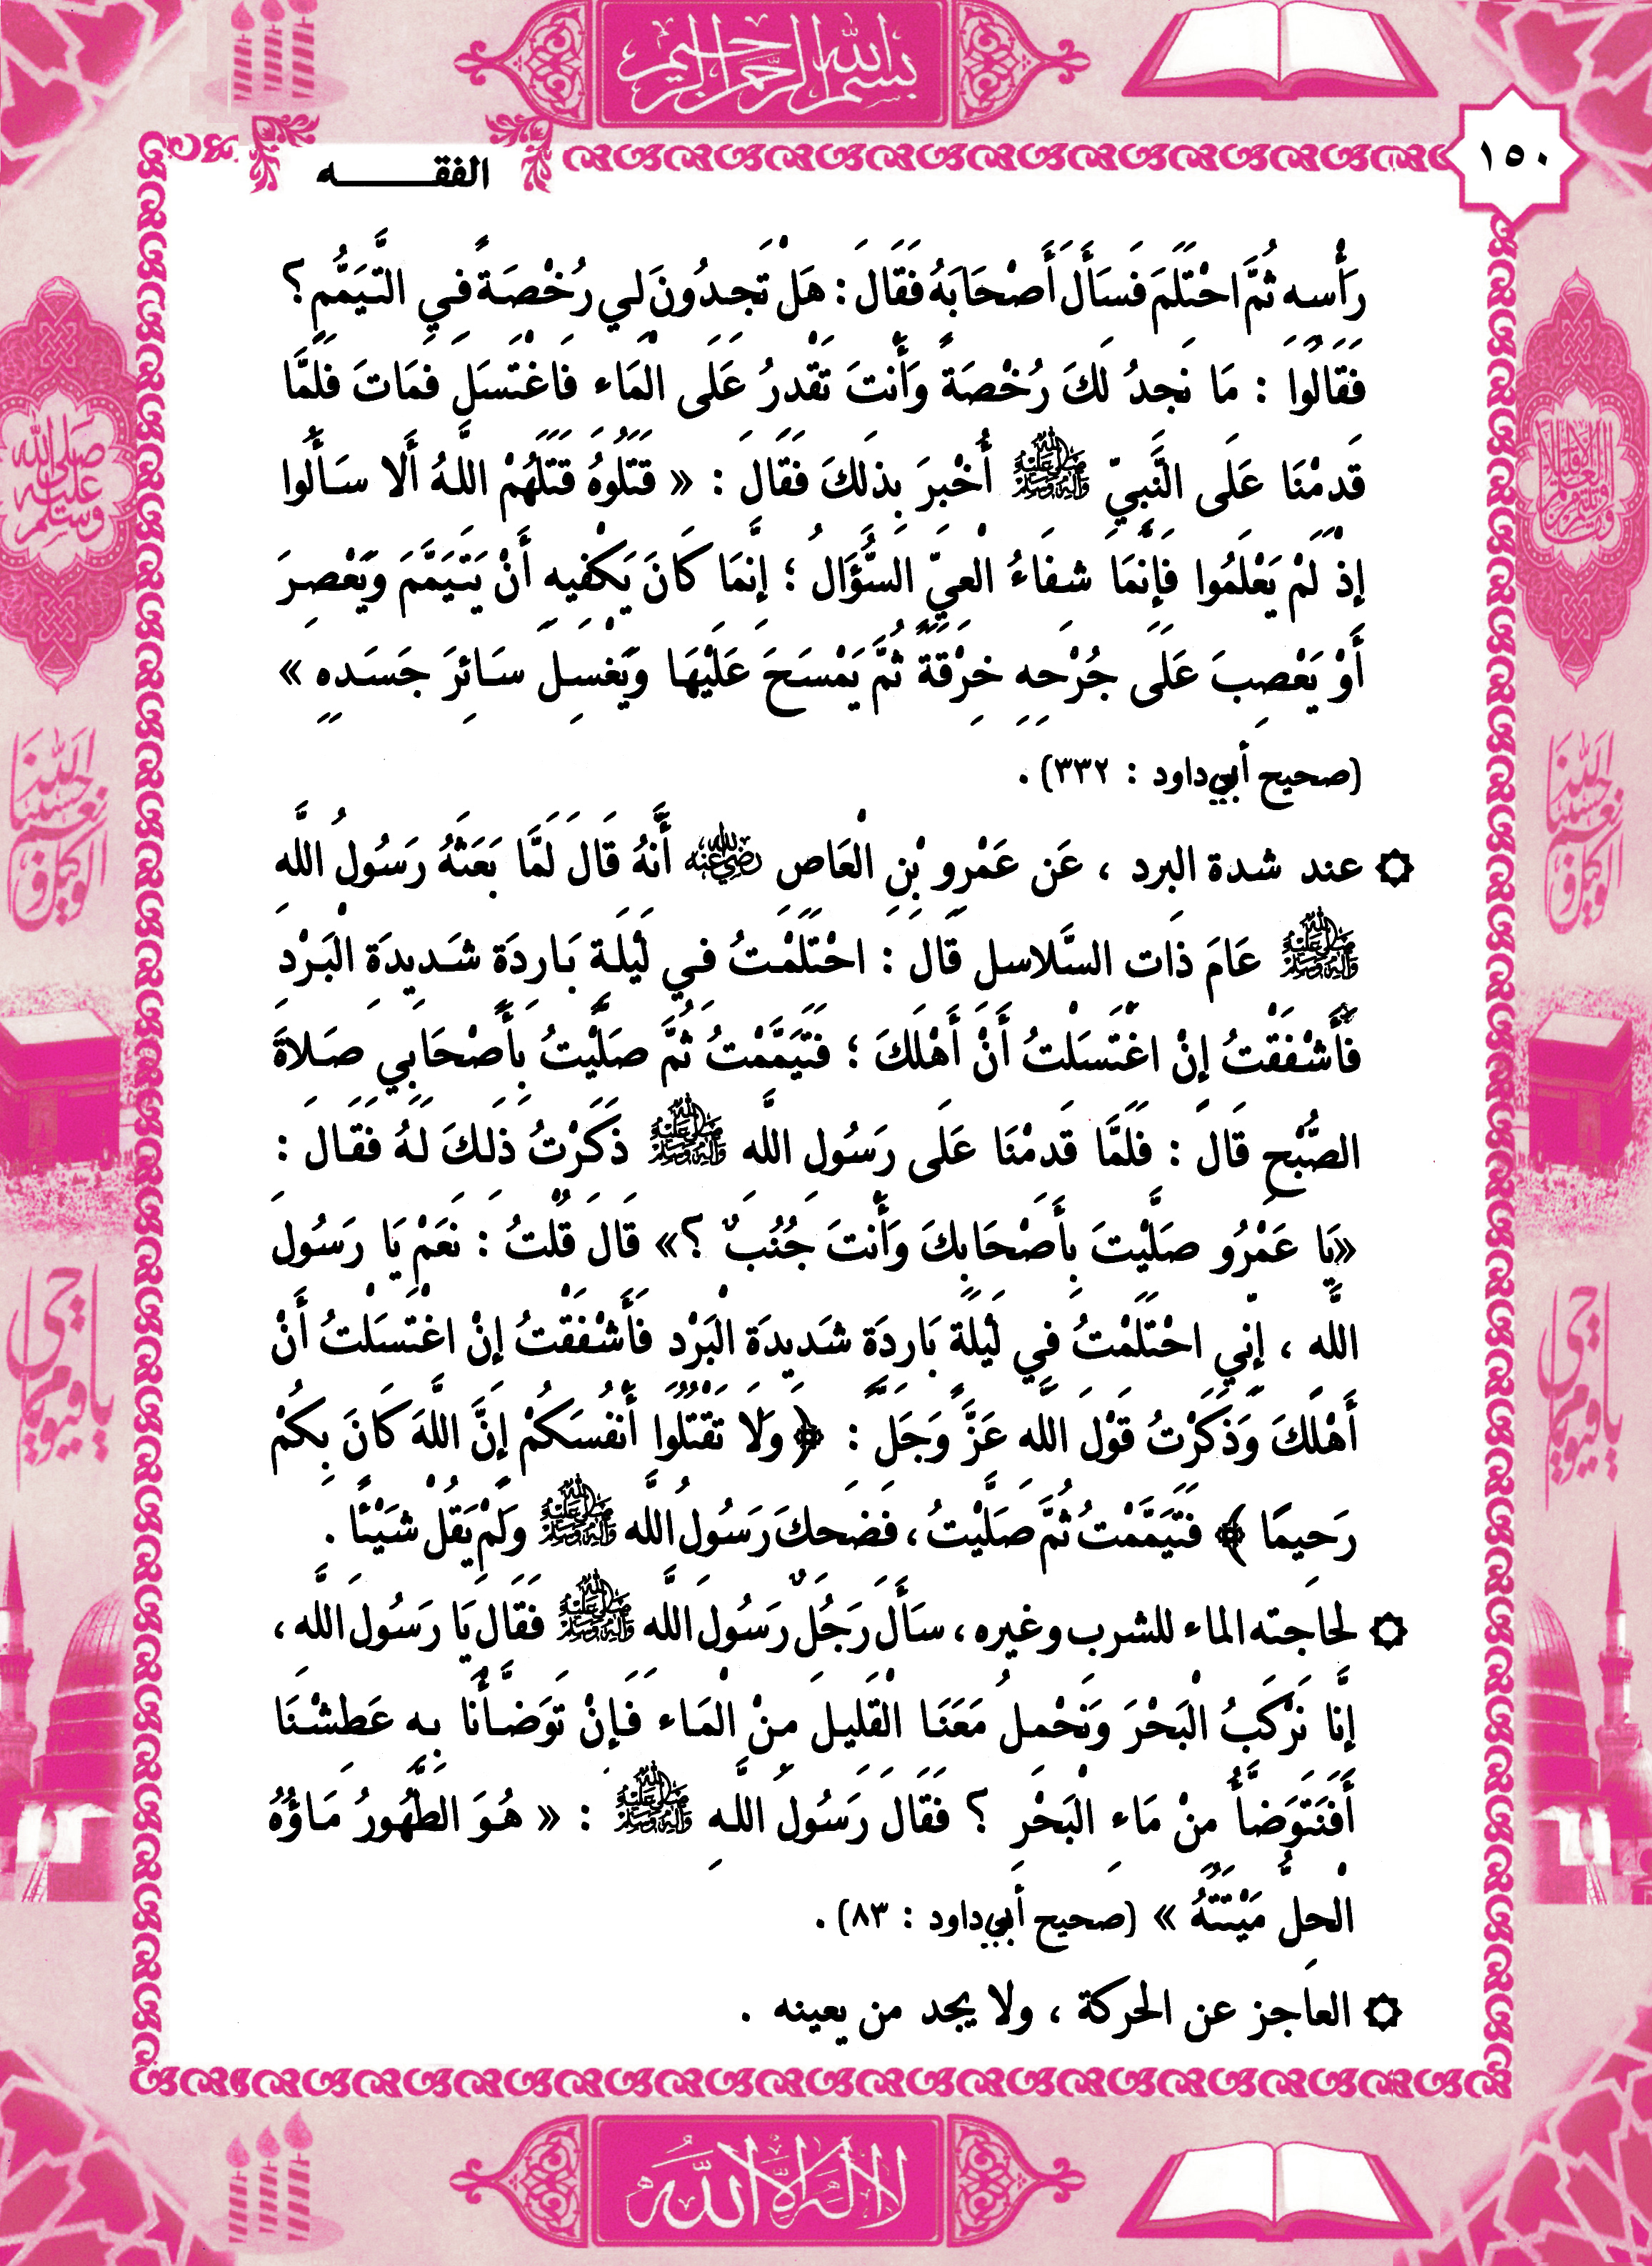 بسم الله الرحمن الرحيم
١٥٠
الفقه
رَأْسِهِ ثُمَّ احْتَلَمَ فَسَأَلَ أَصْحَابَهُ فَقَالَ : هَلْ تَجِدُونَ لِي رُخْصَةً فِي التَّيَمُّمِ ؟
فَقَالُوا : مَا نَجِدُ لَكَ رُخْصَةً وَأَنْتَ تَقْدِرُ عَلَى الْمَاءِ فَاغْتَسَلَ فَمَاتَ فَلَمَّا
قَدِمْنَا عَلَى النَّبِيِّ ﷺ أُخْبِرَ بِذَلِكَ فَقَالَ : « قَتَلُوهُ قَتَلَهُمْ اللهُ أَلا سَأَلُوا
إِذْ لَمْ يَعْلَمُوا فَإِنَّمَا شِفَاءُ الْعِيِّ السُّؤَالُ ؛ إِنَّمَا كَانَ يَكْفِيهِ أَنْ يَتَيَمَّمَ وَيَعْصِرَ
أَوْ يَعْصِبَ عَلَى جُرْحِهِ خِرْقَةً ثُمَّ يَمْسَحَ عَلَيْهَا وَيَغْسِلَ سَائِرَ جَسَدِهِ »
(صحيح أبي داود : ٣٣٢) .
عند شدة البرد ، عَن عَمْرِو بْنِ الْعَاصِ رضي الله عنه أَنَّهُ قَالَ لَمَّا بَعَثَهُ رَسُولُ اللَّهِ
ﷺ عَامَ ذَاتِ السَّلاسِلِ قَالَ : احْتَلَمْتُ فِي لَيْلَةٍ بَارِدَةٍ شَدِيدَةِ الْبَرْدِ
فَأَشْفَقْتُ إِنْ اغْتَسَلْتُ أَنْ أَهْلَكَ ؛ فَتَيَمَّمْتُ ثُمَّ صَلَّيْتُ بِأَصْحَابِي صَلاةَ
الصُّبْحِ قَالَ : فَلَمَّا قَدِمْنَا عَلَى رَسُولِ اللهِ ﷺ ذَكَرْتُ ذَلِكَ لَهُ فَقَالَ :
«يَا عَمْرُو صَلَّيْتَ بِأَصْحَابِكَ وَأَنْتَ جُنُبٌ ؟» قَالَ قُلْتُ : نَعَمْ يَا رَسُولَ
اللَّهِ ، إِنِّي احْتَلَمْتُ فِي لَيْلَةٍ بَارِدَةٍ شَدِيدَةِ الْبَرْدِ فَأَشْفَقْتُ إِنْ اغْتَسَلْتُ أَنْ
أَهْلَكَ وَذَكَرْتُ قَوْلَ اللَّهِ عَزَّ وَجَلَّ : ﴿ وَلَا تَقْتُلُوا أَنْفُسَكُمْ إِنَّ اللَّهَ كَانَ بِكُمْ
رَحِيمًا ﴾ فَتَيَمَّمْتُ ثُمَّ صَلَّيْتُ ، فَضَحِكَ رَسُولُ اللَّهِ ﷺ وَلَمْ يَقُلْ شَيْئًا .
لحاجته الماء للشرب وغيره ، سَأَلَ رَجُلٌ رَسُولَ اللَّهِ ﷺ فَقَالَ يَا رَسُولَ اللَّهِ ،
إِنَّا نَرْكَبُ الْبَحْرَ وَنَحْمِلُ مَعَنَا الْقَلِيلَ مِنْ الْمَاءِ فَإِنْ تَوَضَّأْنَا بِهِ عَطِشْنَا
أَفَنَتَوَضَّأُ مِنْ مَاءِ الْبَحْرِ ؟ فَقَالَ رَسُولُ اللَّهِ ﷺ : « هُوَ الطَّهُورُ مَاؤُهُ
الْحِلُّ مَيْتَتُهُ » (صحيح أبي داود : ٨٣) .
العاجز عن الحركة ، ولا يجد من يعينه .
لا إله إلا الله
صلى الله عليه وسلم
حسبنا الله ونعم الوكيل
يا حي يا قيوم